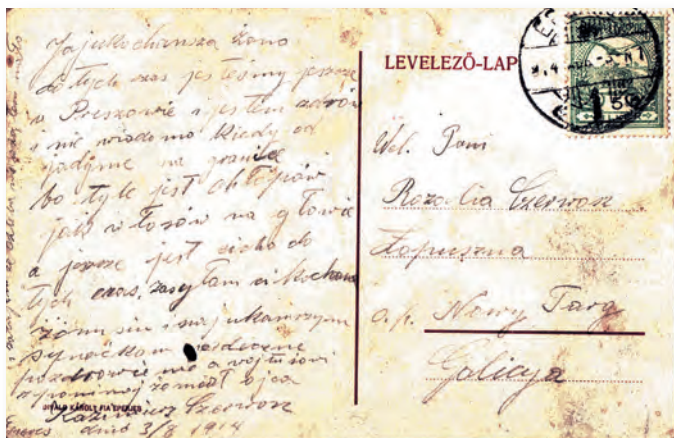 Jajukochansza żono
do tych czas jesteśmy jeszcze
w Preszowie i jestem zdrów
i nie wiadomo kiedy od
jadyme na granice
bo tyle jest chłopów
jak włosów na głowie
a jescze jest cicho do
tych czas. zasyłam ci kochana
żono
synaczkom serdeczne
pozdrowienie a wojtusiowi
ojca
Kazimierz Czerwosz
dnia 3/8 1914
DIVALD KÁROLY FIA EPERJES
LEVELEZŐ-LAP
Wel. Pani
Rozalia Czerwosz
Łopuszna
o.p. Nowy Targ
Galicya